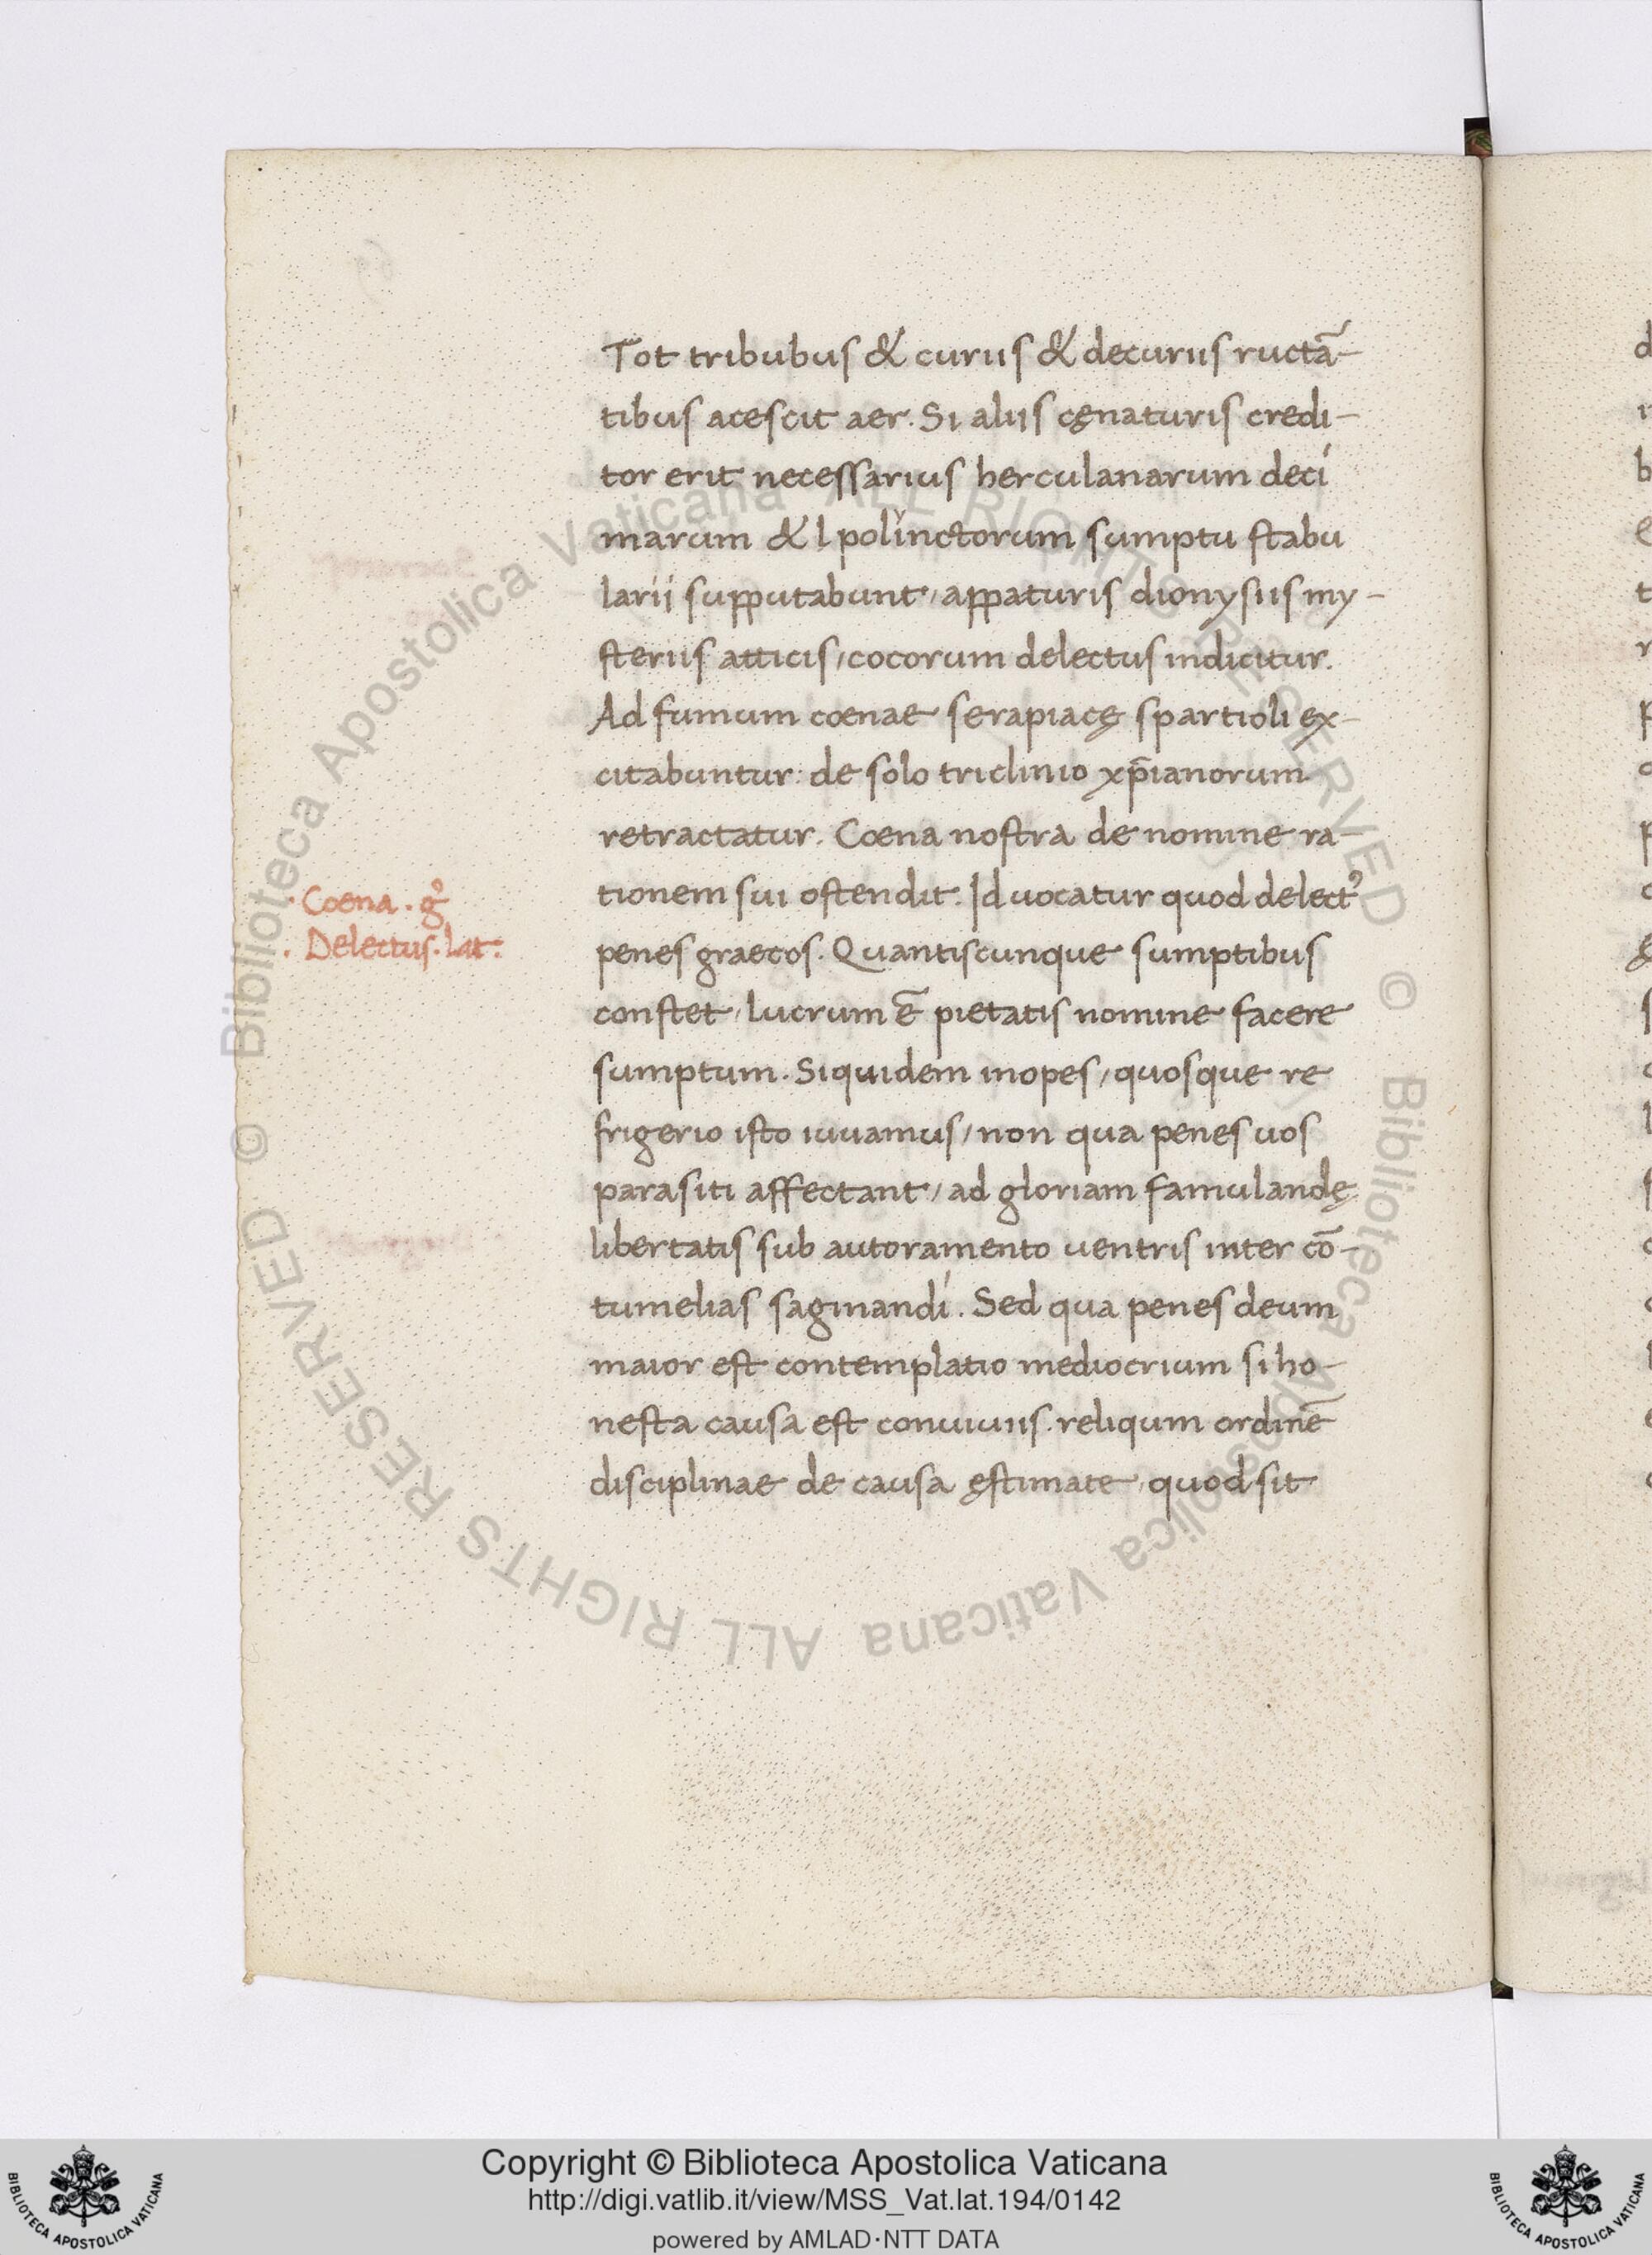 Tot tribubus & curiis & decuriis ructā-
tibus acescit aer. Si aliis cęnaturis credi-
tor erit necessarius herculanarum deci
marum & l polinctorum sumptu stabu
larii supputabunt, appaturis dionysiis my-
steriis atticis, cocorum delectus indicitur.
Ad fumum coenae serapiacę spartioli ex-
citabuntur: de solo triclinio xp̄ianorum
retractatur. Coena nostra de nomine ra-
tionem sui ostendit. Id uocatur quod delectꝰ
penes graecos. Quantiscunque sumptibus
constet, lucrum ē pietatis nomine facere
sumptum. Siquidem inopes, quosque re
frigerio isto iuuamus, non qua penes uos
parasiti affectant, ad gloriam famulandę
libertatis sub autoramento uentris inter cō-
tumelias saginandi. Sed qua penes deum
maior est contemplatio mediocrium si ho-
nesta causa est conuiuiis. reliqum ordinē
disciplinae de causa ęstimate, quod sit
· Coena . gͦ
. Delectus. lat.
© Biblioteca Apostolica Vaticana ALL RIGHTS RESERVED
© Biblioteca Apostolica Vaticana ALL RIGHTS RESERVED
Copyright © Biblioteca Apostolica Vaticana
http://digi.vatlib.it/view/MSS_Vat.lat.194/0142
powered by AMLAD·NTT DATA
BIBLIOTECA APOSTOLICA VATICANA
BIBLIOTECA APOSTOLICA VATICANA